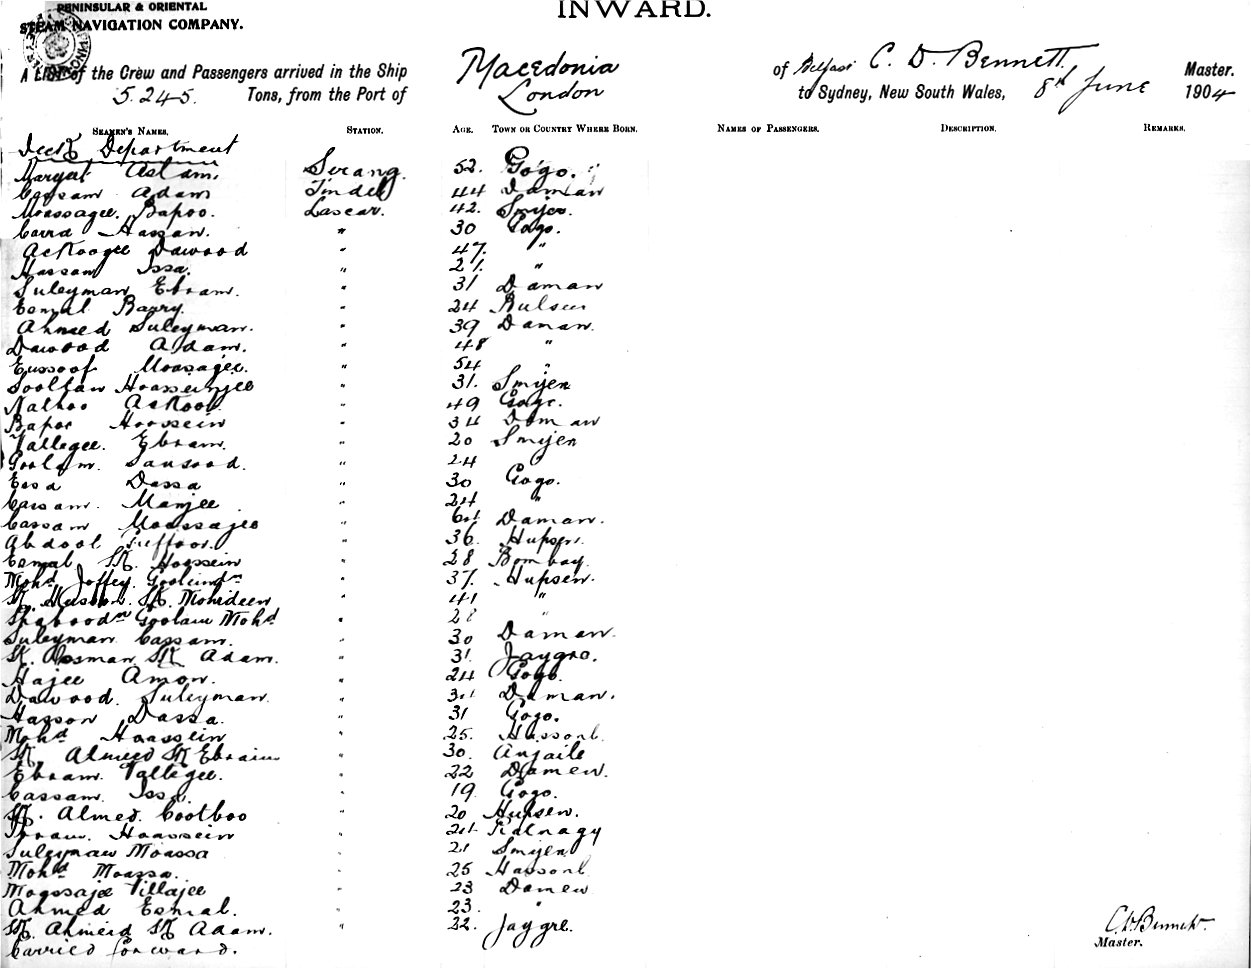 PENINSULAR & ORIENTAL
STEAM NAVIGATION COMPANY.
INWARD.
A LIST of the Crew and Passengers arrived in the Ship Macedonia of Belfast C. D. Bennett. Master.
5.245. Tons, from the Port of London to Sydney, New South Wales, 8th June 1904
SEAMEN'S NAMES. STATION. AGE. TOWN OR COUNTRY WHERE BORN. NAMES OF PASSENGERS. DESCRIPTION. REMARKS.
Deck Department
Aslam. Serang. 52. Gogo.
Cassam Adam Tindel 44 Daman
Moassagee. Bapoo. Lascar. 42.
Hassan. " 30 Gogo.
Dawood " 47. "
Hassam Issa. " 21. "
Suleyman Ebram. " 31 Daman
Esmal " 24 Bulsur
Ahmed Suleyman. " 39 Daman.
Dawood Adam. " 48 "
Eussoof Moosagee. " 54 "
Sooltan " 31. Smijen
Nathoo " 49 Gogo.
Bapoo Hoossein " 34 Daman
Vallegee. Ebram. " 20 Smijen
Goolam. " 24
Essa Dassa " 30 Gogo.
Cassam. Manjee " 24 "
Cassam Moassajee " Daman.
Abdool Guffoor. " 36.
Esmal SK. Hoassein " 28 Bombay.
Mohd Joffey. " 37. Hupsen.
SK. Hasson. SK. Mohideen " 41 "
Goolam Mohd " 28 "
Suleyman Cassam. " 30 Daman.
SK. Oosman SK Adam. " 31. Jaygro.
Hajee Amon. " 24 Gogo.
Dawood. Suleyman. " Daman.
Hasson Dassa. " 31 Gogo.
Mohd Haassein " 25.
SK. Ahmed SK Ebraim " 30. Anjaile
Ebram. Vallegee. " 22 Damen.
Cassam Issa. " 19. Gogo.
SK. Ahmed. Cootboo " 20 Hupsen.
Haassein "
Suleyman Moassa " 21 Smijen
Mohd Moassa. " 25
Moossajee Villajee " 23 Damen
Ahmed Esmal. " 23. "
SK. Ahmeid SK Adam. " 22. Jaygre.
Carried forward.
C. D. Bennett.
Master.